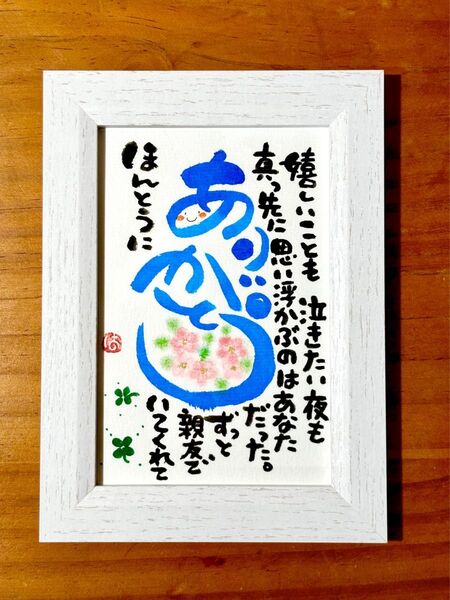 嬉しいことも 泣きたい夜も
真っ先に思い浮かぶのはあなた
だった。
ずっと
親友で
いてくれて
ほんとうに
ありがとう